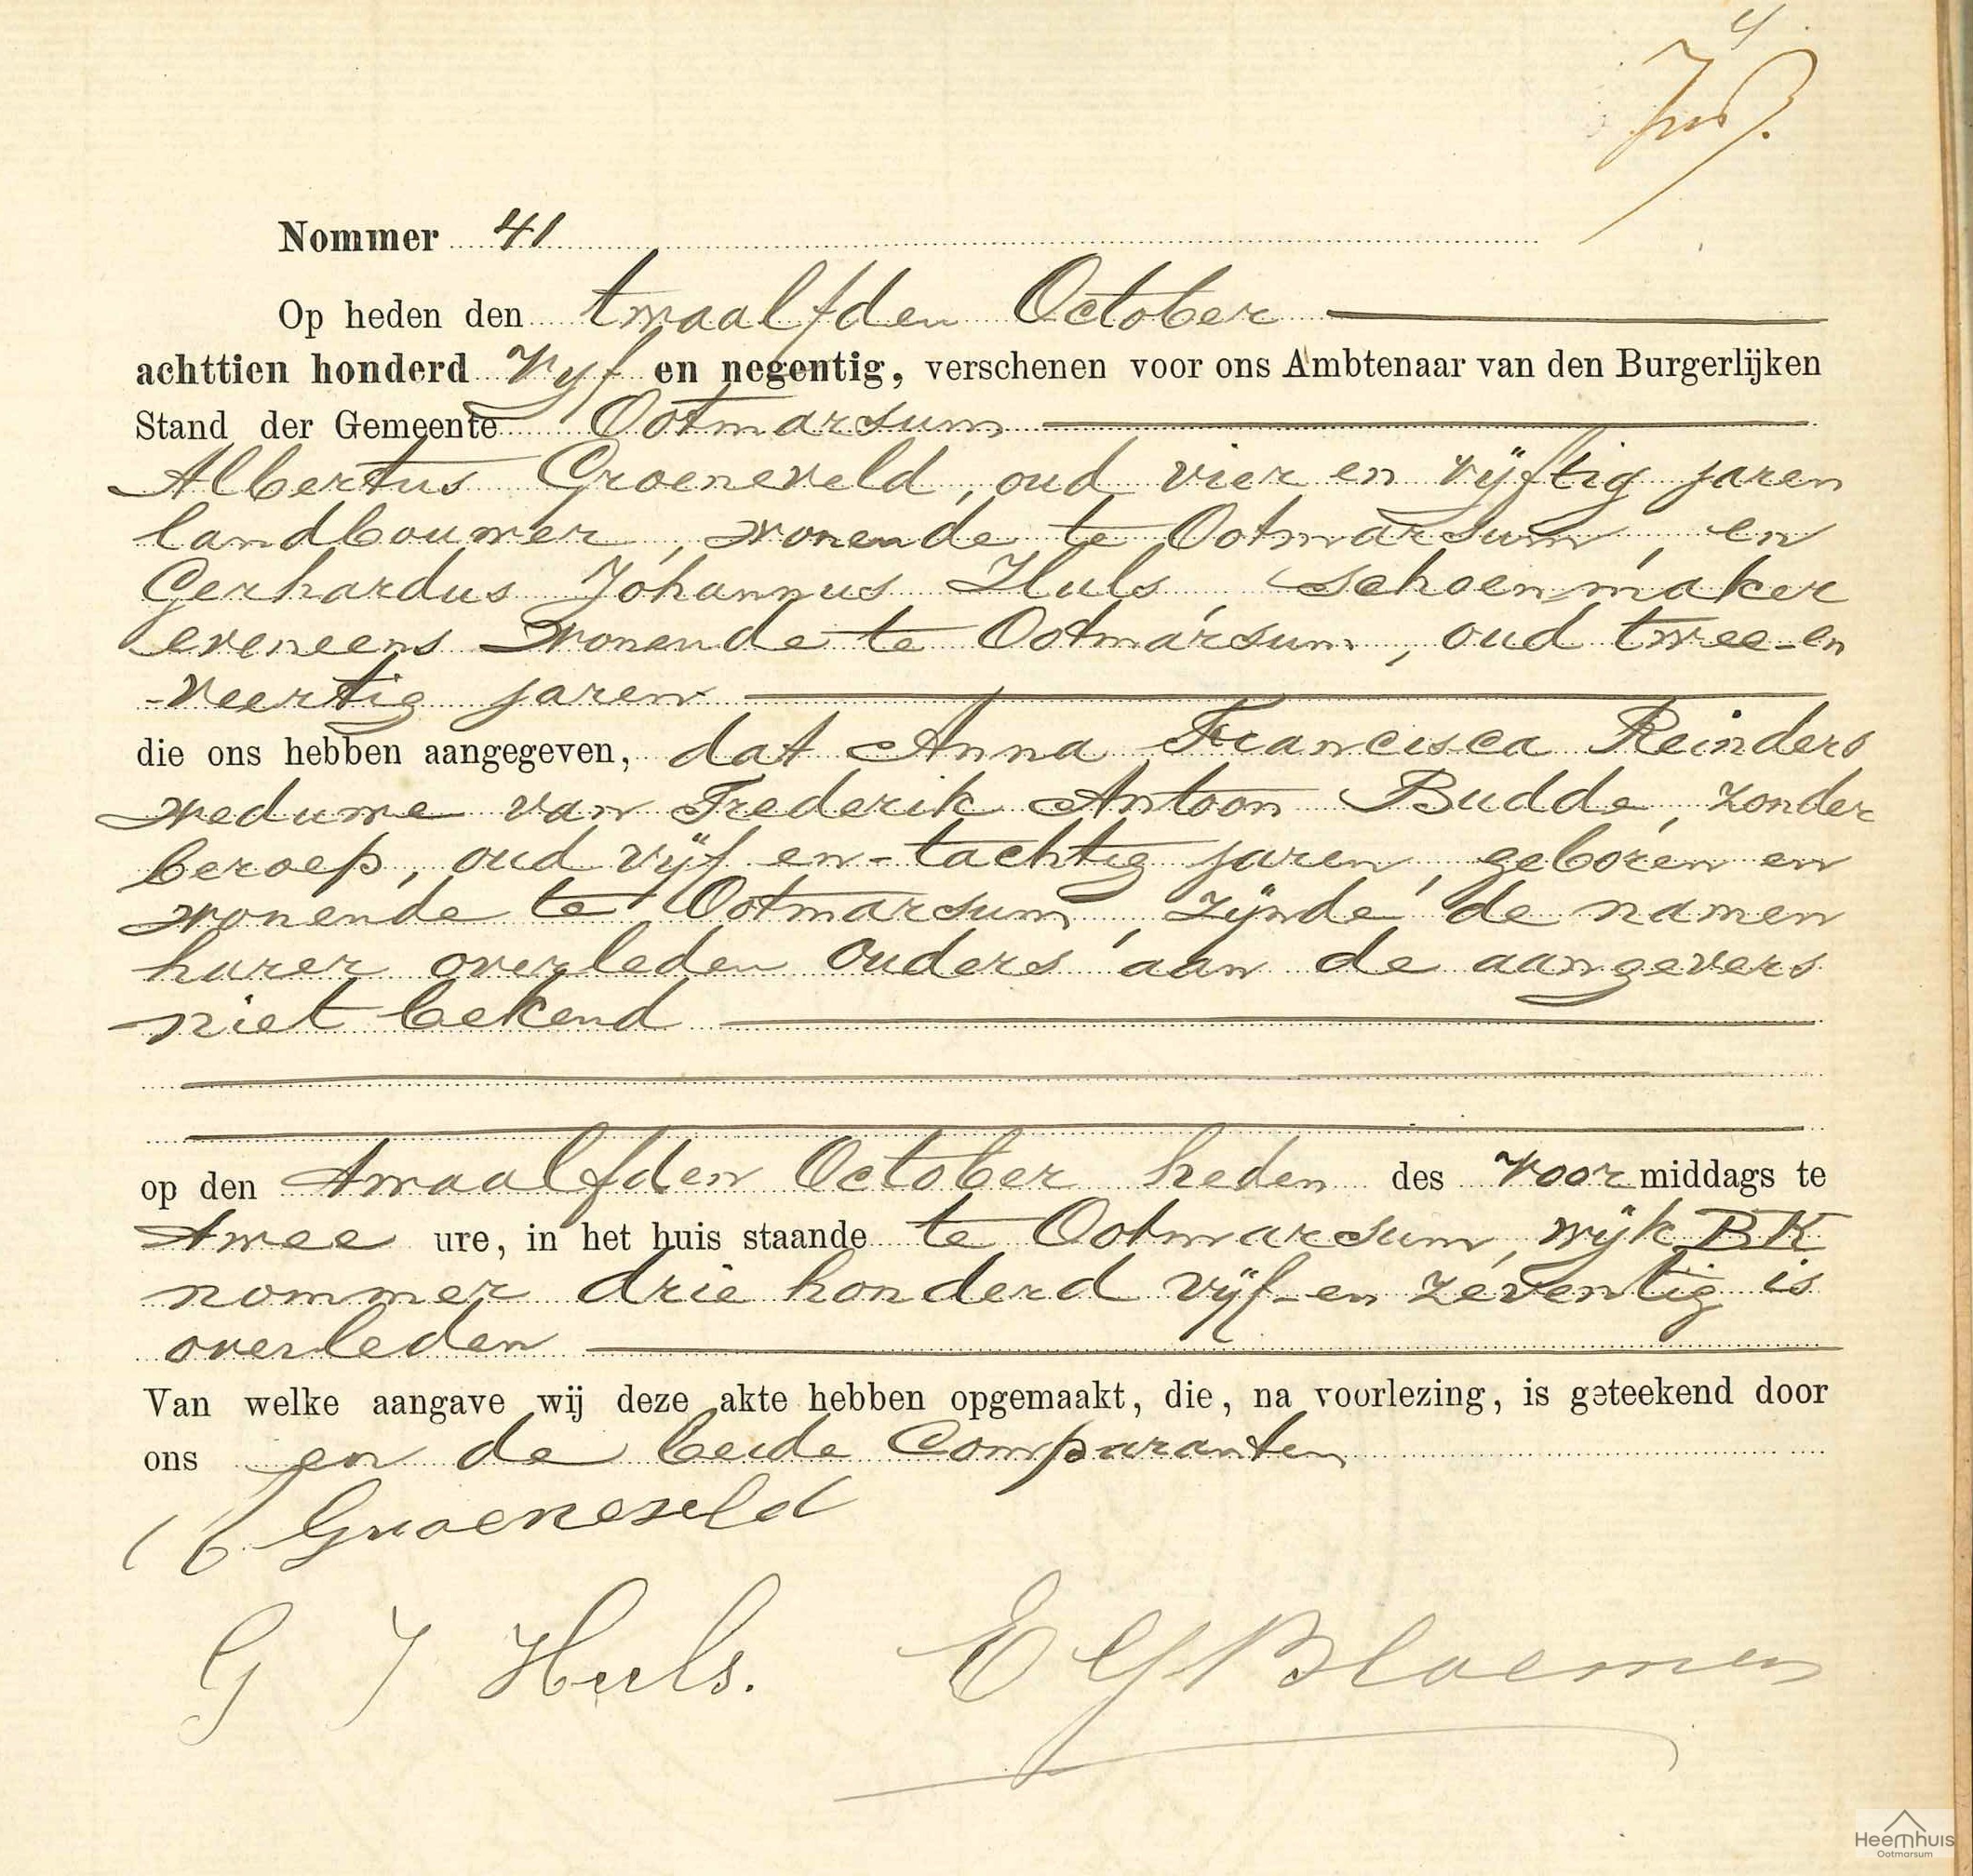 Nommer 41
Op heden den twaalfden October
achttien honderd Vijf en negentig, verschenen voor ons Ambtenaar van den Burgerlijken
Stand der Gemeente Ootmarsum
Albertus Groeneveld, oud vier en vijftig jaren
landbouwer, wonende te Ootmarsum, en
Gerhardus Johannus Huls, Schoenmaker
eveneens wonende te Ootmarsum, oud twee-en
-veertig jaren
die ons hebben aangegeven, dat Anna Francisca Reinders
weduwe van Frederik Antoon Budde, zonder
beroep, oud vijf en-tachtig jaren, geboren en
wonende te Ootmarsum, zijnde de namen
harer overleden Ouders aan de aangevers
niet bekend
op den twaalfden October heden des Voormiddags te
twee ure, in het huis staande te Ootmarsum, wijk BK
nommer drie honderd vijf-en zeventig is
overleden
Van welke aangave wij deze akte hebben opgemaakt, die, na voorlezing, is geteekend door
ons en de beide Comparanten
Groeneveld
G J Huls. E G Bloemen
Heemhuis
Ootmarsum